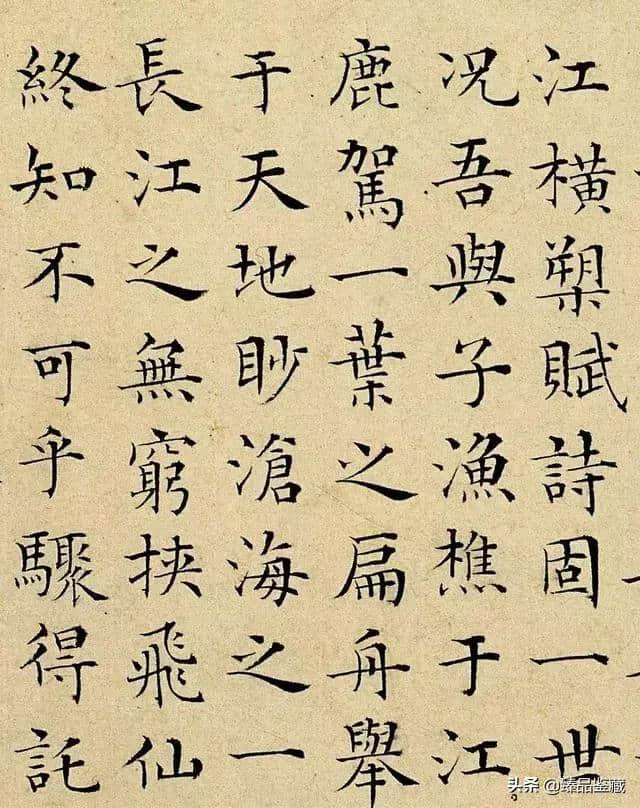 江橫槊賦詩固一世
況吾與子漁樵于江
鹿駕一葉之扁舟舉
于天地眇滄海之一
長江之無窮挾飛仙
終知不可乎驟得託
头条 @臻品鉴藏